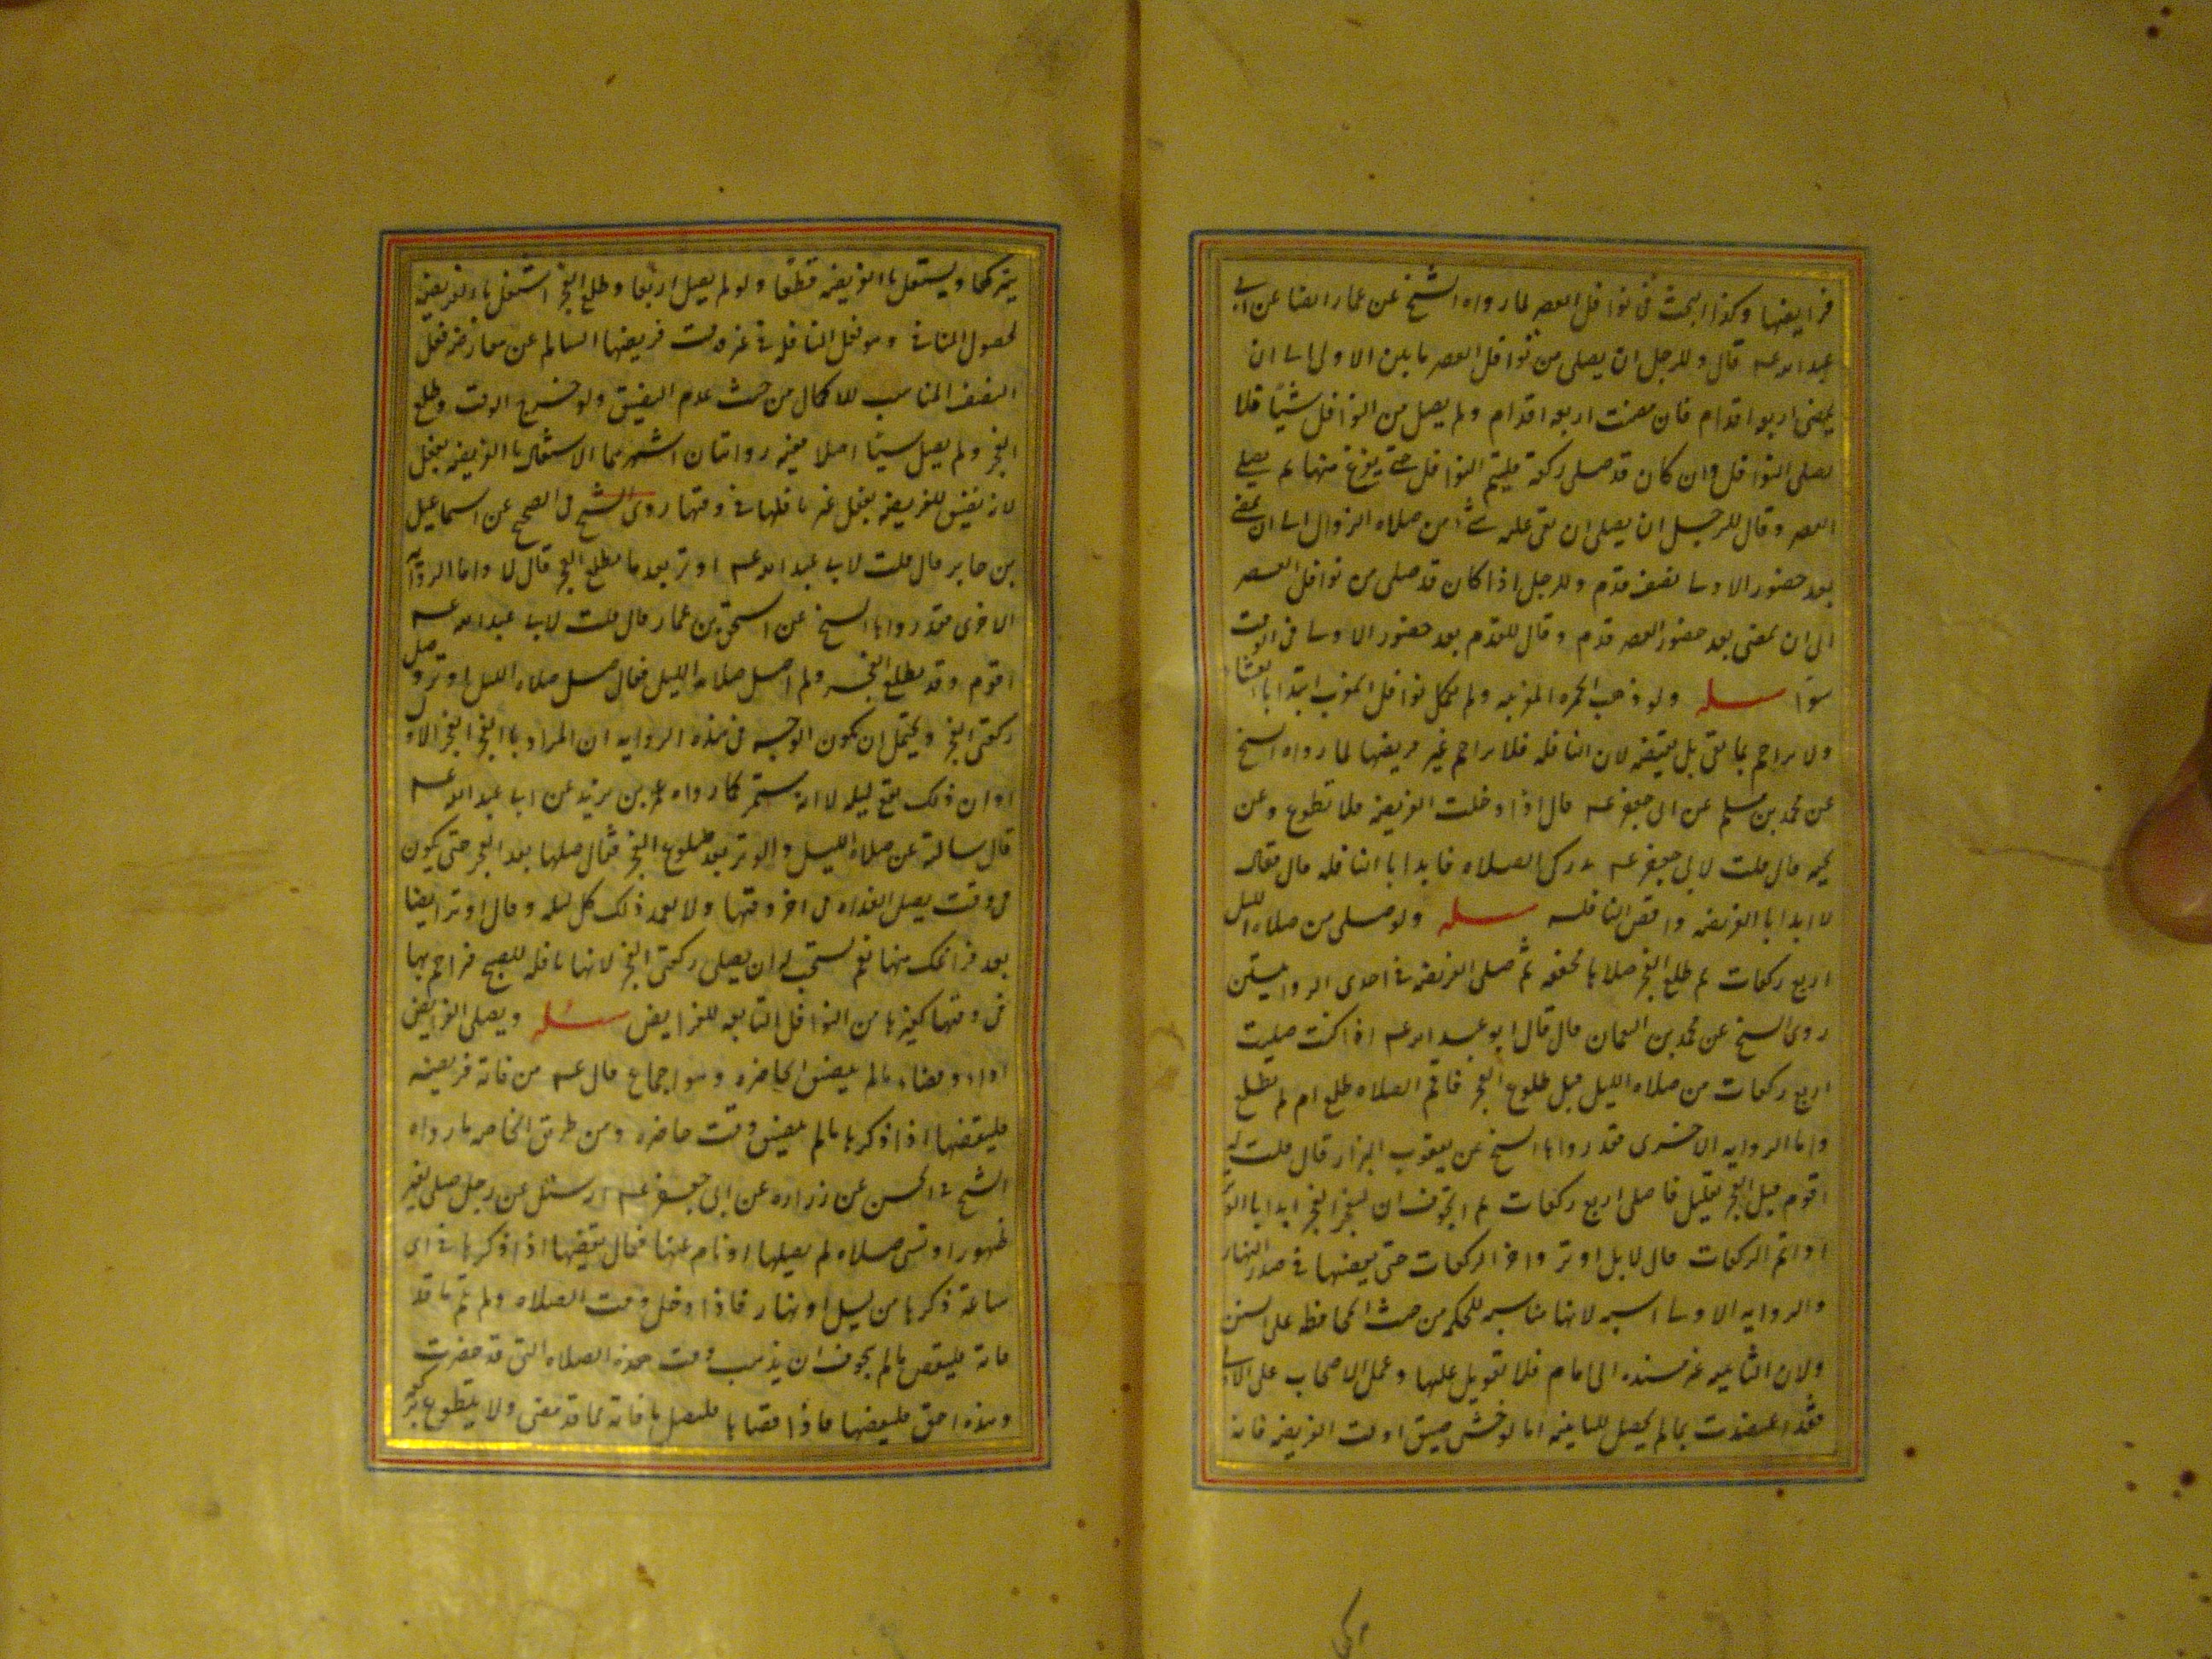 فرايضها وكذا البحث في نوافل العصر لما رواه الشيخ عن عمار ايضا عن ابي
عبد الله عـم قال وللرجل ان يصلي من نوافل العصر ما بين الاولى الى ان
يمضي اربع اقدام فان مضت اربع اقدام ولم يصل من النوافل شيئا فلا
يصلي النوافل وان كان قد صلى ركعة فليتم النوافل حتى يفرغ منها ثم يصلي
العصر وقال للرجل ان يصلي ان بقي عليه شي من صلاه الزوال الى ان يمضي
بعد حضور الاولى نصف قدم وللرجل اذا كان قد صلى من نوافل العصر
الى ان يمضي بعد حضور العصر قدم وقال للقدم بعد حضور الاولى في الوقت
سوا مسله ولو ذهب الحمره المغربيه ولم يكمل نوافل المغرب ابتدا بالعشا
ولا يزاحم بما بقي بل يقضيه لان النافله فلا يزاحم غير فريضتها لما رواه الشيخ
عن محمد بن مسلم عن ابي جعفر عـم قال اذا دخلت الفريضه فلا تطوع وعن
قال قلت لابي جعفر عـم تدركني الصلاه فابدا بالنافله قال فقال
لا ابدا بالفريضه واقض النافله مسله ولو صلى من صلاه الليل
اربع ركعات ثم طلع الفجر صلاها مخففه ثم صلى الفريضه في احدى الروايتين
روى الشيخ عن محمد بن النعمان قال قال ابو عبد الله عـم اذا كنت صليت
اربع ركعات من صلاه الليل قبل طلوع الفجر فاتم الصلاه طلع ام لم يطلع
واما الروايه الاخرى فقد رواها الشيخ عن يعقوب البزار قال قلت له
اقوم قبل الفجر بقليل فاصلي اربع ركعات ثم اتخوف ان ينفجر الفجر ابدا بالوتر
او اتم الركعات قال لا بل اوتر واخر الركعات حتى يقضيها في صدر النهار
والروايه الاولى انسب لانها مناسبه للحكم من حيث المحافظه على السنن
ولان الثانيه غير مسنده الى امام فلا تعويل عليها وعمل الاصحاب على الاولى
فقد اعتضدت بما لم يحصل للثانيه اما لو خشي ضيق وقت الفريضه فانه
يتركها ويشتغل بالفريضه قطعا ولو لم يصل اربعا وطلع الفجر اشتغل بالفريضه
لحصول المنافي وهو فعل النافله في غير وقت فريضتها السالم عن معارضه فعل
النصف المناسب للاكمال من حيث عدم الضيق ولو خرج الوقت وطلع
الفجر ولم يصل شيئا اصلا ففيه روايتان اشهرهما الاشتغال بالفريضه بفعل
لانه يضيق للفريضه بفعل غير نافلتها في وقتها روى الشيخ في الصحيح عن اسماعيل
بن جابر قال قلت لابي عبد الله عـم اوتر بعد ما يطلع الفجر قال لا واما الروايه
الاخرى فقد رواها الشيخ عن اسحق بن عمار قال قلت لابي عبد الله عـم
اقوم وقد يطلع الفجر ولم اصل صلاه الليل فقال صل صلاه الليل واوتر وصل
ركعتي الفجر ويحتمل ان يكون الوجه في هذه الروايه ان المراد بالفجر الفجر الاول
او ان ذلك يقع ليله لا انه يستمر كما رواه عمر بن يزيد عن ابي عبد الله عـم
قال سالته عن صلاه الليل والوتر بعد طلوع الفجر فقال صلها بعد الفجر حتى يكون
في وقت يصلي الغداه في اخر وقتها ولا تعمد ذلك كل ليله وقال اوتر ايضا
بعد فراغك منها نعم يستحب له ان يصلي ركعتي الفجر لانها نافله للصبح فزاحم بها
في وقتها كغيرها من النوافل التابعه للفرايض مسله ويصلي الفرايض
اداء وقضاء ما لم يتضيق الحاضره وهو اجماع قال عـم من فاته فريضه
فليقضها اذا ذكرها ما لم يتضيق وقت حاضره ومن طريق الخاصه ما رواه
الشيخ في الحسن عن زراره عن ابي جعفر عـم انه سئل عن رجل صلى بغير
طهور او نسي صلاه لم يصلها او نام عنها فقال يقضيها اذا ذكرها في اي
ساعة ذكرها من ليل او نهار فاذا دخل وقت الصلاه ولم يتم ما قد
فاته فليقض ما لم يتخوف ان يذهب وقت هذه الصلاه التي قد حضرت
وهذه احق فليقضها فاذا قضاها فليصل ما فاته مما قد مضى ولا يتطوع بركعه